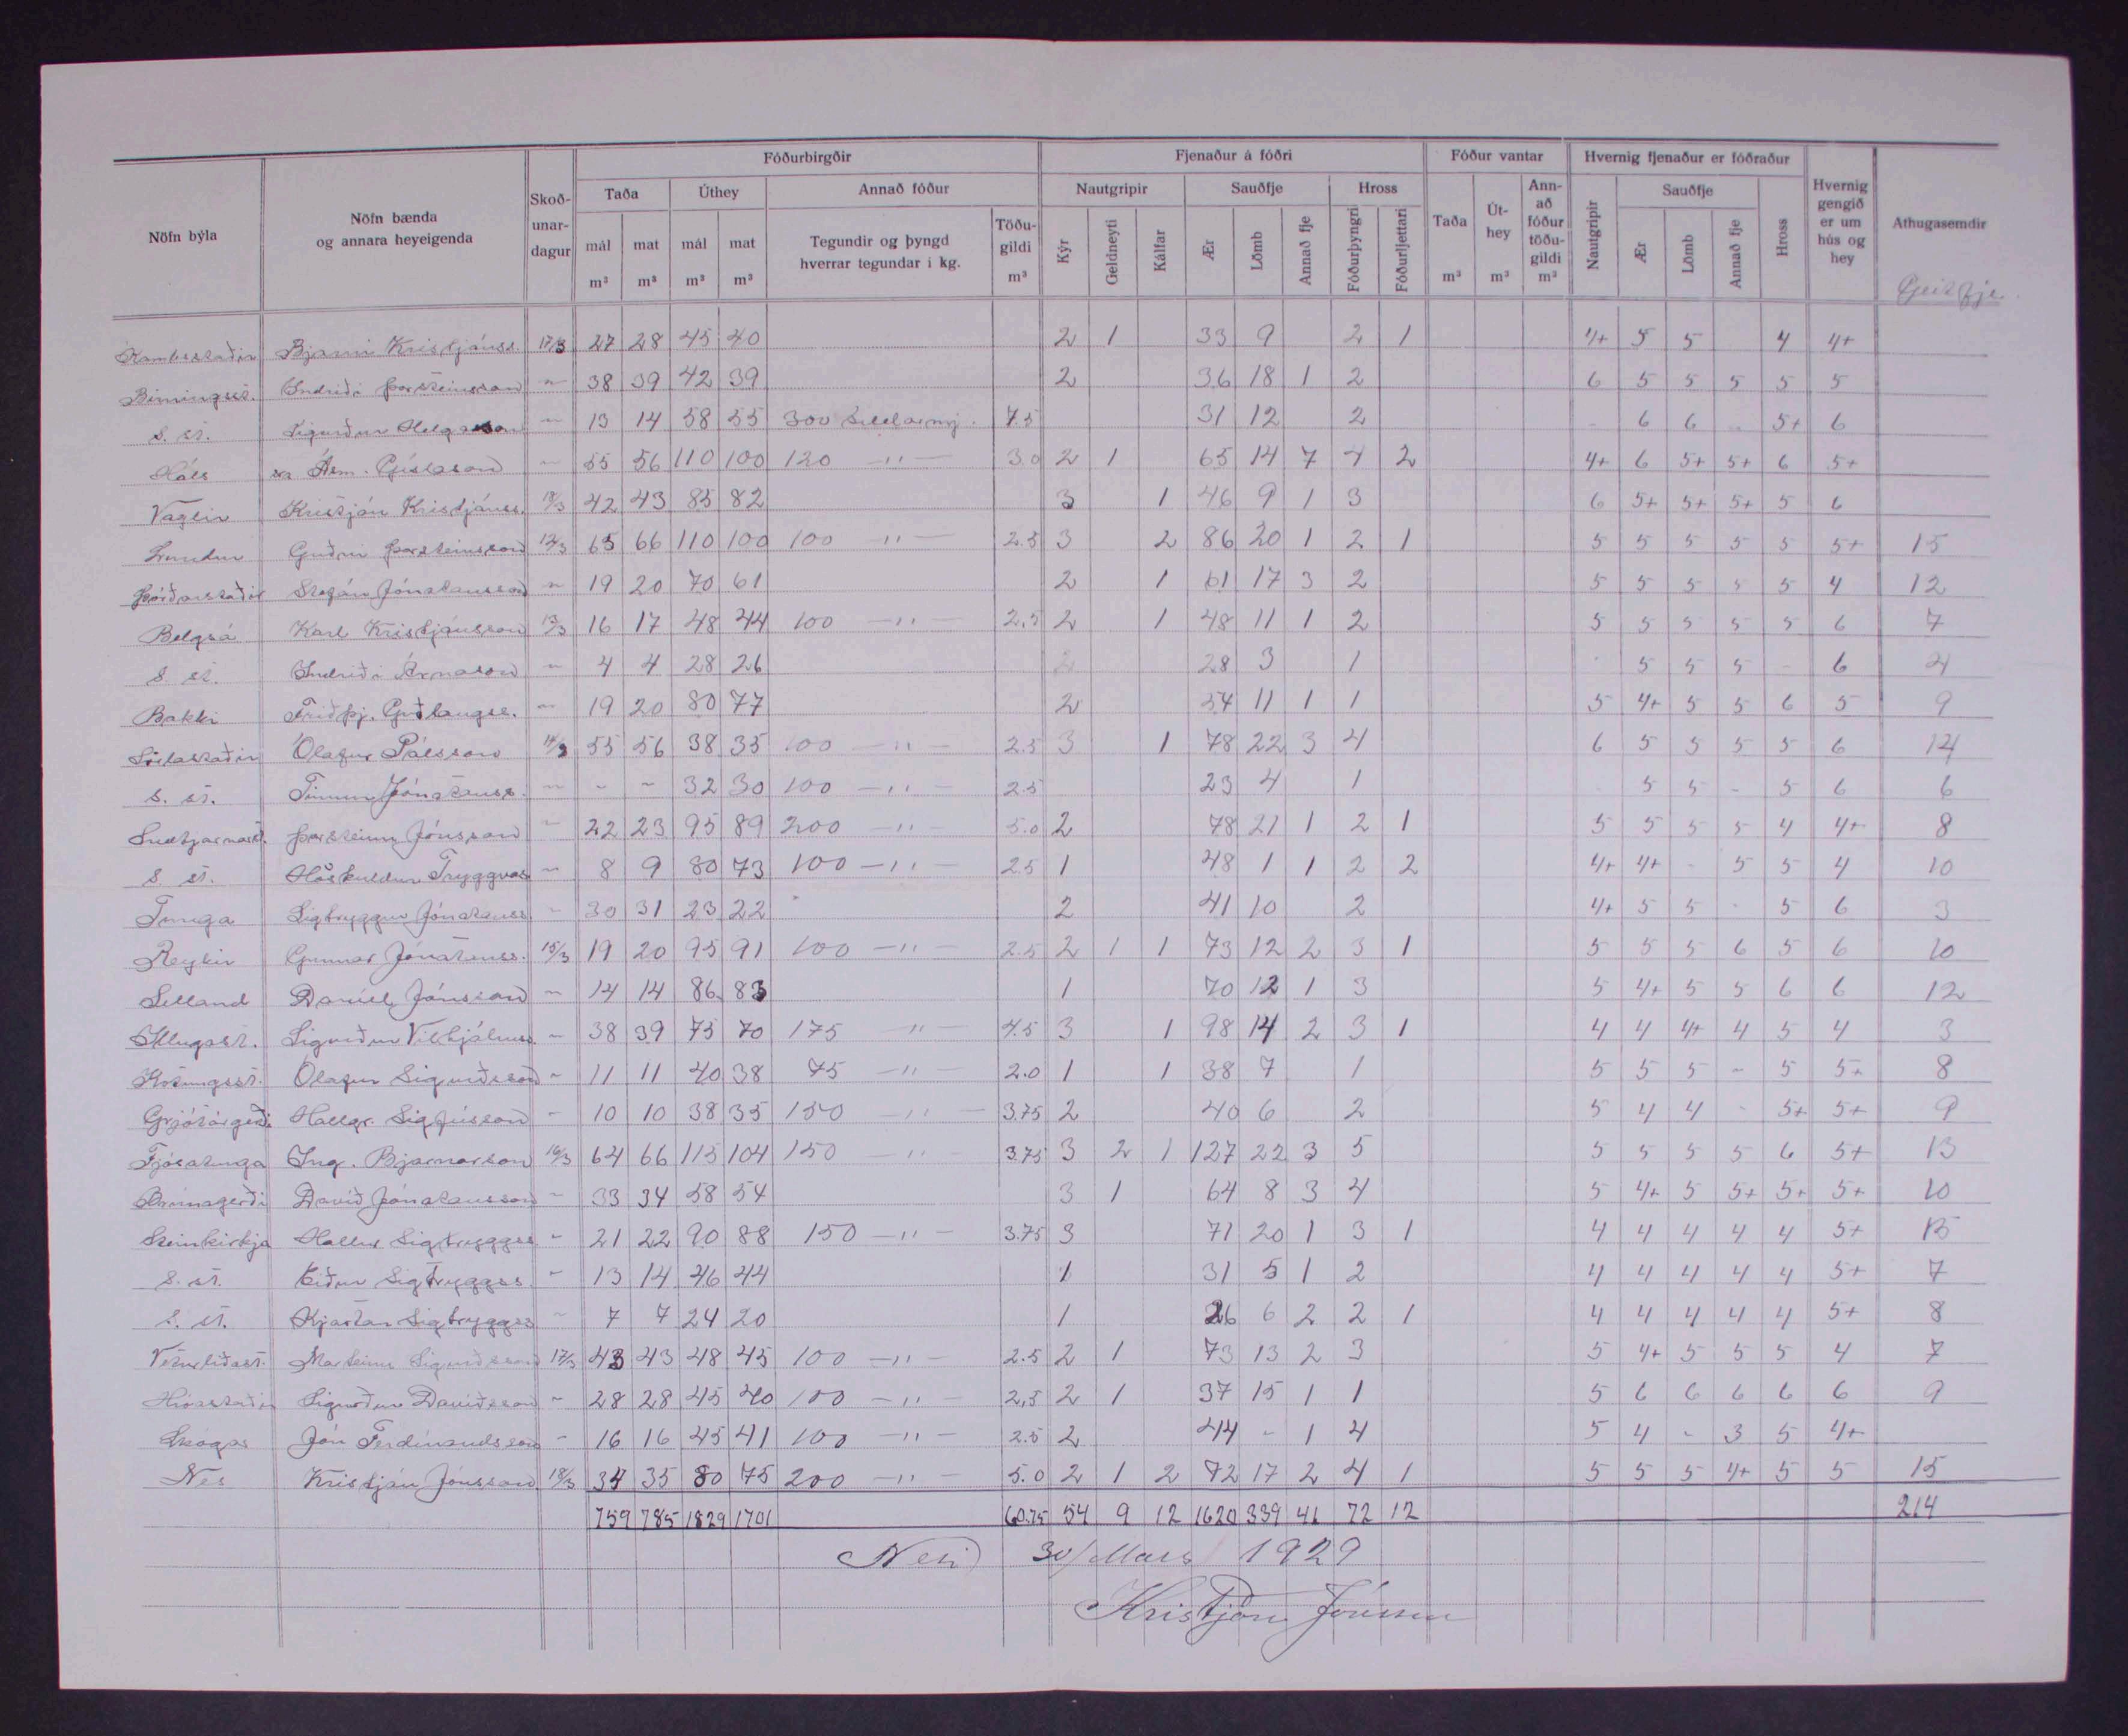 Fóðurbirgðir Fjenaður á fóðri Fóður vantar Hvernig fjenaður er fóðraður
Nöfn býla Nöfn bænda og annara heyeigenda Skoð-unar-dagur Taða Úthey Annað fóður Nautgripir Sauðfje Hross Taða Út-hey Ann-að fóður töðu-gildi Nautgripir Sauðfje Hross Hvernig gengið er um hús og hey Athugasemdir
mál m³ mat m³ mál m³ mat m³ Tegundir og þyngd hverrar tegundar í kg. Töðu-gildi m³ Kýr Geldneyti Kálfar Ær Lömb Annað fje Fóðurþyngri Fóðurljettari m³ m³ m³ Ær Lömb Annað fje
Geitfje
Kambsstaðir Bjarni Kristjánss. 17/3 27 28 45 40 2 1 33 9 2 1 4+ 5 5 4 4+
Birningsst. Indriði Þorsteinsson " 38 39 42 39 2 36 18 1 2 6 5 5 5 5 5
S. st. Sigurður Helgason " 13 14 58 55 300 síldarmj. 7.5 31 12 2 - 6 6 - 5+ 6
Háls sra. Ásm. Gíslason " 55 56 110 100 120 -"- 3.0 2 1 65 14 7 4 2 4+ 6 5+ 5+ 6 5+
Vaglir Kristján Kristjánss. 42 43 85 82 3 1 46 9 1 3 6 5+ 5+ 5+ 5 6
Lundur Guðni Þorsteinsson 12/3 65 66 110 100 100 -"- 2.5 3 2 86 20 1 2 1 5 5 5 5 5 5+ 15
Þórðarstaðir Stefán Jónatansson " 19 20 70 61 2 1 61 17 3 2 5 5 5 5 5 4 12
Belgsá Karl Kristjánsson 13/3 16 17 48 44 100 -"- 2,5 2 1 48 11 1 2 5 5 5 5 5 6 7
S. st. Indriði Árnason " 4 4 28 26 28 3 1 - 5 5 5 - 6 4
Bakki Friðþj. Guðlaugss. " 19 20 80 77 2 54 11 1 1 5 4+ 5 5 6 5 9
Sörlastaðir Ólafur Pálsson 14/3 55 56 38 35 100 -"- 2.5 3 1 78 22 3 4 6 5 5 5 5 6 14
S. st. Finnur Jónatanss. " - - 32 30 100 -"- 2.5 23 4 1 5 5 - 5 6 6
Snæbjarnarst. Þorsteinn Jónsson " 22 23 95 89 200 -"- 5.0 2 78 21 1 2 1 5 5 5 5 4 4+ 8
S. st. Höskuldur Tryggvas. " 8 9 80 73 100 -"- 2.5 1 48 1 1 2 2 4+ 4+ - 5 5 4 10
Tunga Sigtryggur Jónatanss. " 30 31 23 22 2 41 10 2 4+ 5 5 - 5 6 3
Reykir Gunnar Jónatanss. 15/3 19 20 95 91 100 -"- 2.5 2 1 1 73 12 2 3 1 5 5 5 6 5 6 10
Selland Daníel Jónsson " 14 14 86 83 1 70 12 1 3 5 4+ 5 5 6 6 12
Illugast. Sigurður Vilhjálmss. " 38 39 75 70 175 -"- 4.5 3 1 98 14 2 3 1 4 4 4+ 4 5 4 3
Kotungsst. Ólafur Sigurðsson " 11 11 40 38 75 -"- 2.0 1 1 38 7 1 5 5 5 - 5 5+ 8
Grjótárgerði Hallgr. Sigfússon " 10 10 38 35 150 -"- 3.75 2 40 6 2 5 4 4 - 5+ 5+ 9
Fjósatunga Ing. Bjarnarson 16/3 64 66 115 104 150 -"- 3.75 3 2 1 127 22 3 5 5 5 5 5 6 5+ 13
Brúnagerði Davíð Jónatansson " 33 34 58 54 3 1 64 8 3 4 5 4+ 5 5+ 5+ 5+ 10
Steinkirkja Hallur Sigtryggss " 21 22 90 88 150 -"- 3.75 3 71 20 1 3 1 4 4 4 4 4 5+ 15
S. st. Eiður Sigtryggss. " 13 14 46 44 1 31 5 1 2 4 4 4 4 4 5+ 7
S. st. Kjartan Sigtryggss " 7 7 24 20 1 26 6 2 2 1 4 4 4 4 4 5+ 8
Veturliðast. Marteinn Sigurðsson 17/3 43 43 48 45 100 -"- 2.5 2 1 73 13 2 3 5 4+ 5 5 5 4 7
Hróastaðir Sigurður Davíðsson " 28 28 45 40 100 -"- 2,5 2 1 37 15 1 1 5 6 6 6 6 6 9
Skógar Jón Ferdínandsson " 16 16 45 41 100 -"- 2.5 2 44 - 1 4 5 4 - 3 5 4+
Nes Kristján Jónsson 18/3 34 35 80 75 200 -"- 5.0 2 1 2 72 17 2 4 1 5 5 5 4+ 5 5 15
759 785 1829 1701 60.75 54 9 12 1620 339 41 72 12 214
Nesi 30/Mars 1929
Kristján Jónsson